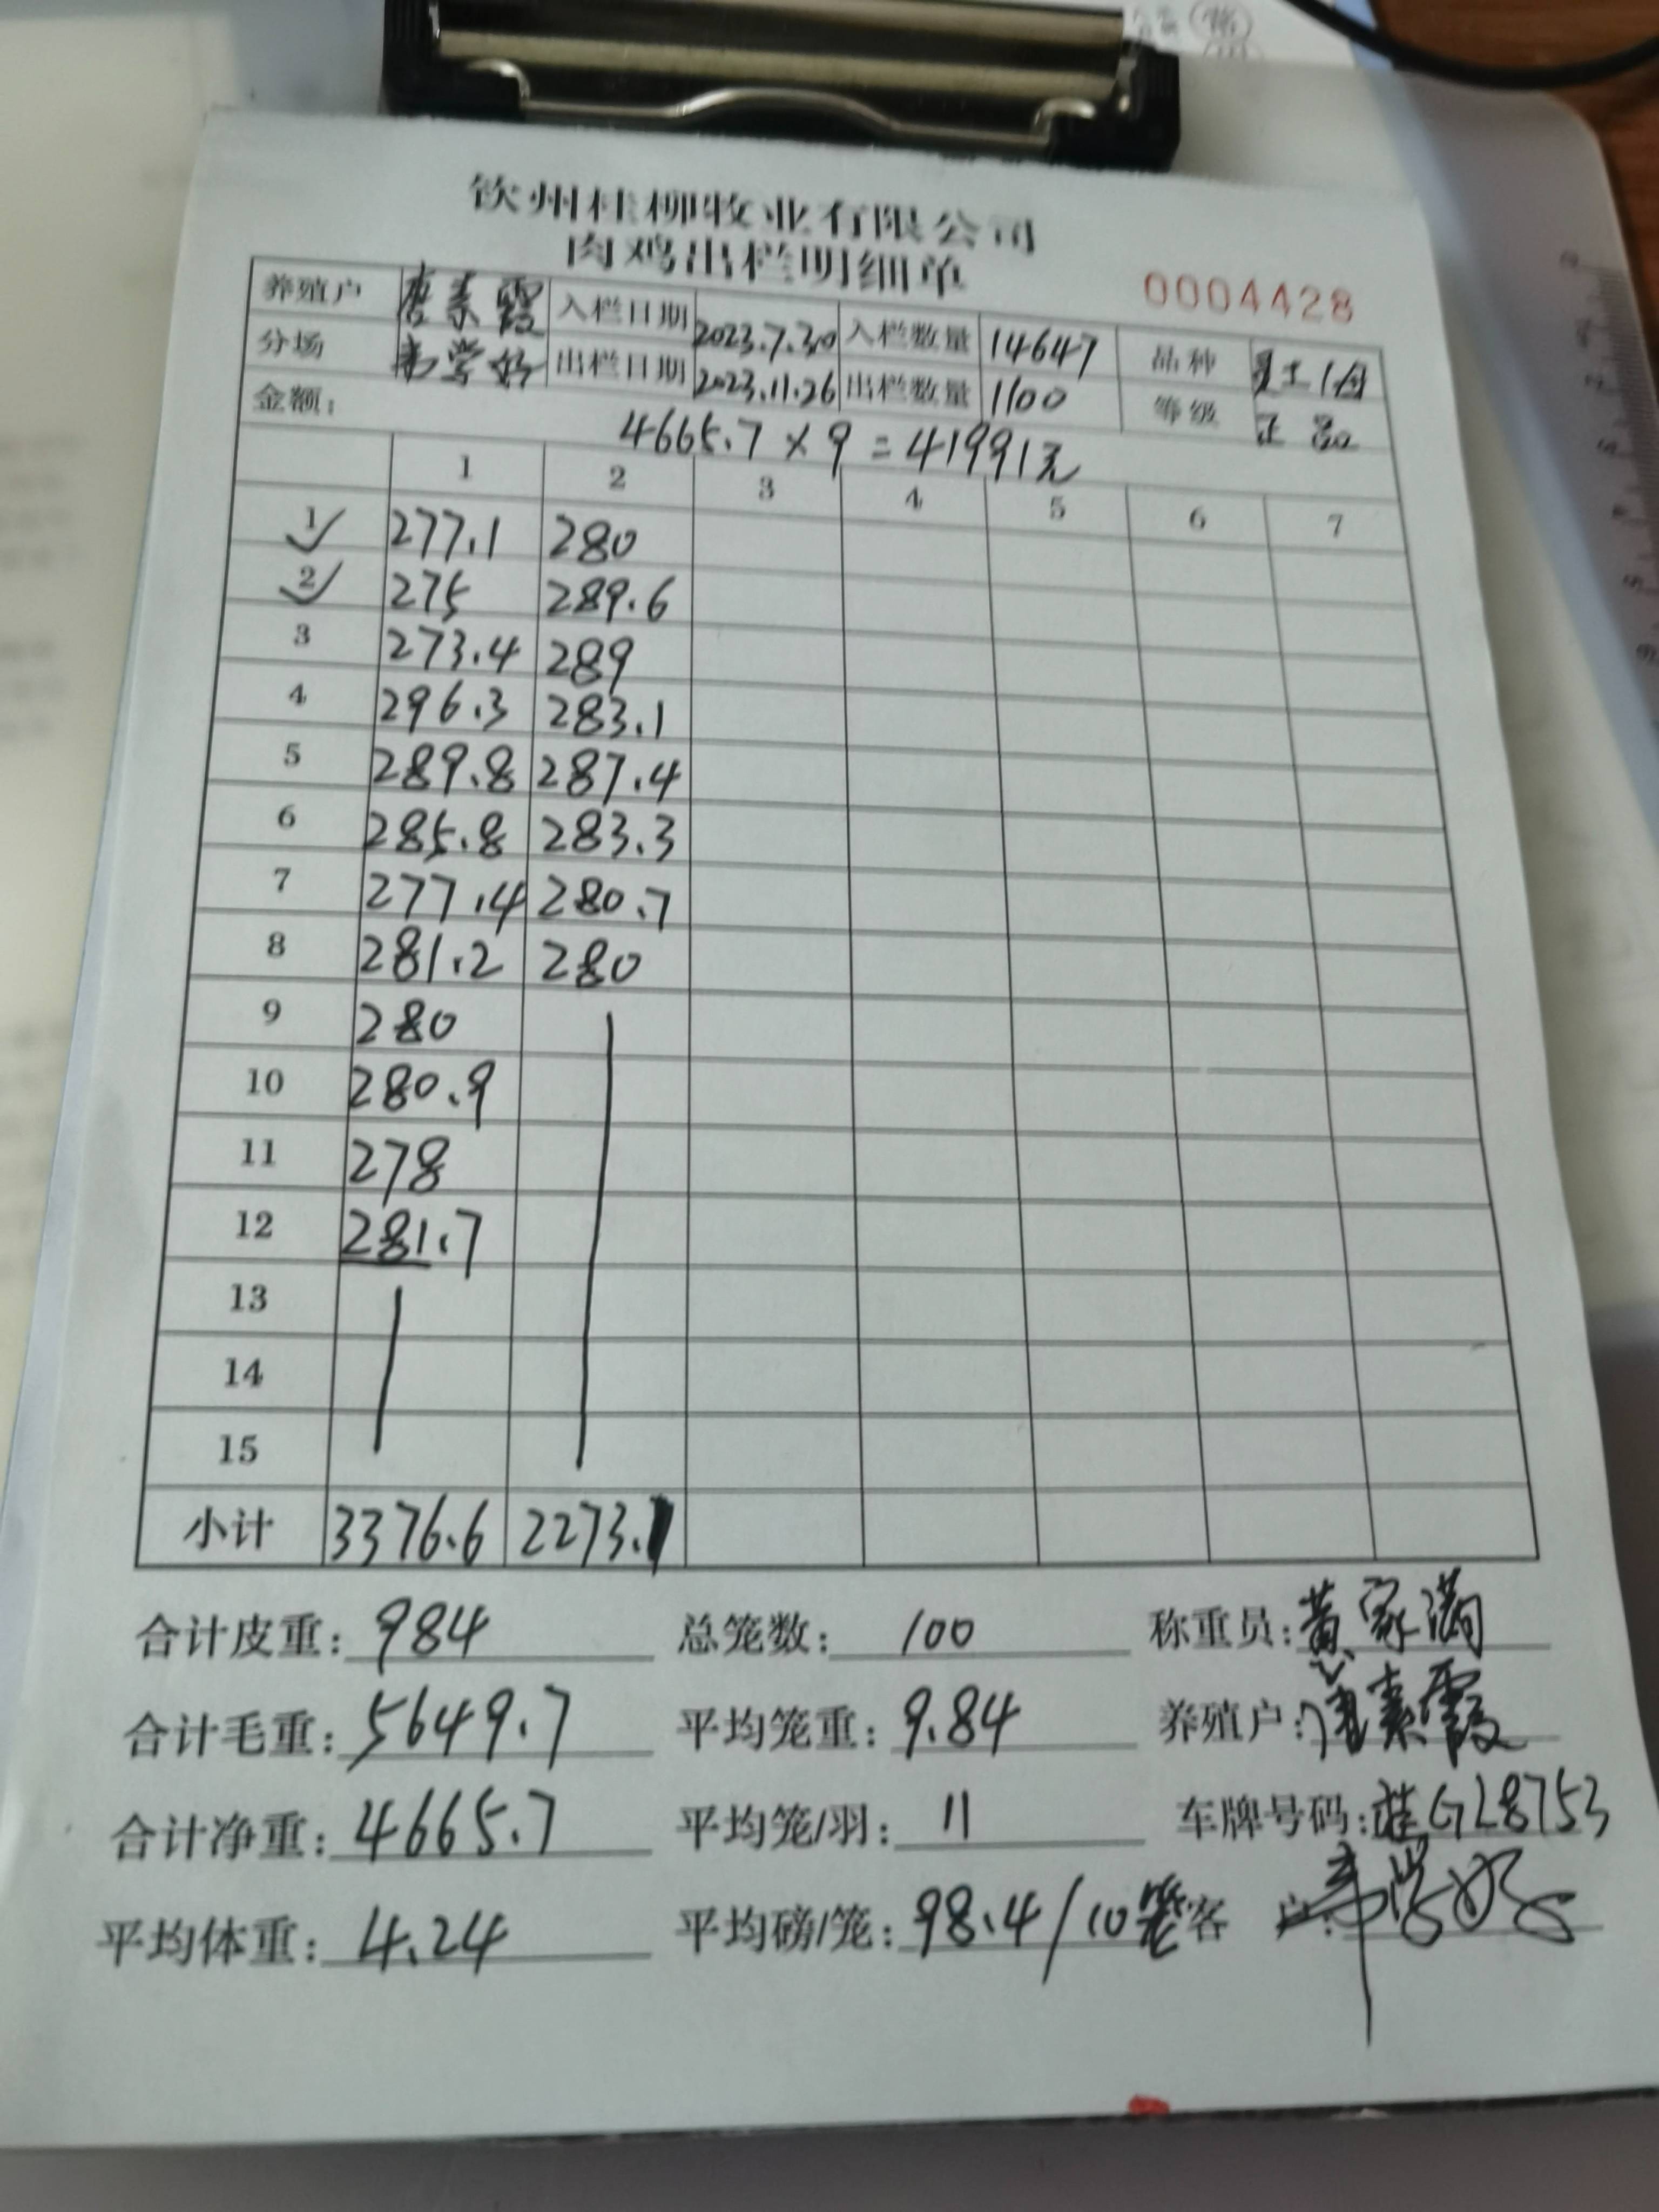 钦州桂柳牧业有限公司
肉鸡出栏明细单
0004428
养殖户 唐素霞 入栏日期 2023.7.30 入栏数量 14647 品种
分场 韦学好 出栏日期 2023.11.26 出栏数量 1100 等级 正品
金额: 4665.7×9=41991元
1 2 3 4 5 6 7
1 277.1 280
2 275 289.6
3 273.4 289
4 296.3 283.1
5 289.8 287.4
6 285.8 283.3
7 277.4 280.7
8 281.2 280
9 280
10 280.9
11 278
12 281.7
13
14
15
小计 3376.6 2273.1
合计皮重: 984 总笼数: 100 称重员: 黄家满
合计毛重: 5649.7 平均笼重: 9.84 养殖户: 唐素霞
合计净重: 4665.7 平均笼/羽: 11 车牌号码: 桂GL8753
平均体重: 4.24 平均磅/笼: 98.4/10笼 客户: 韦学好